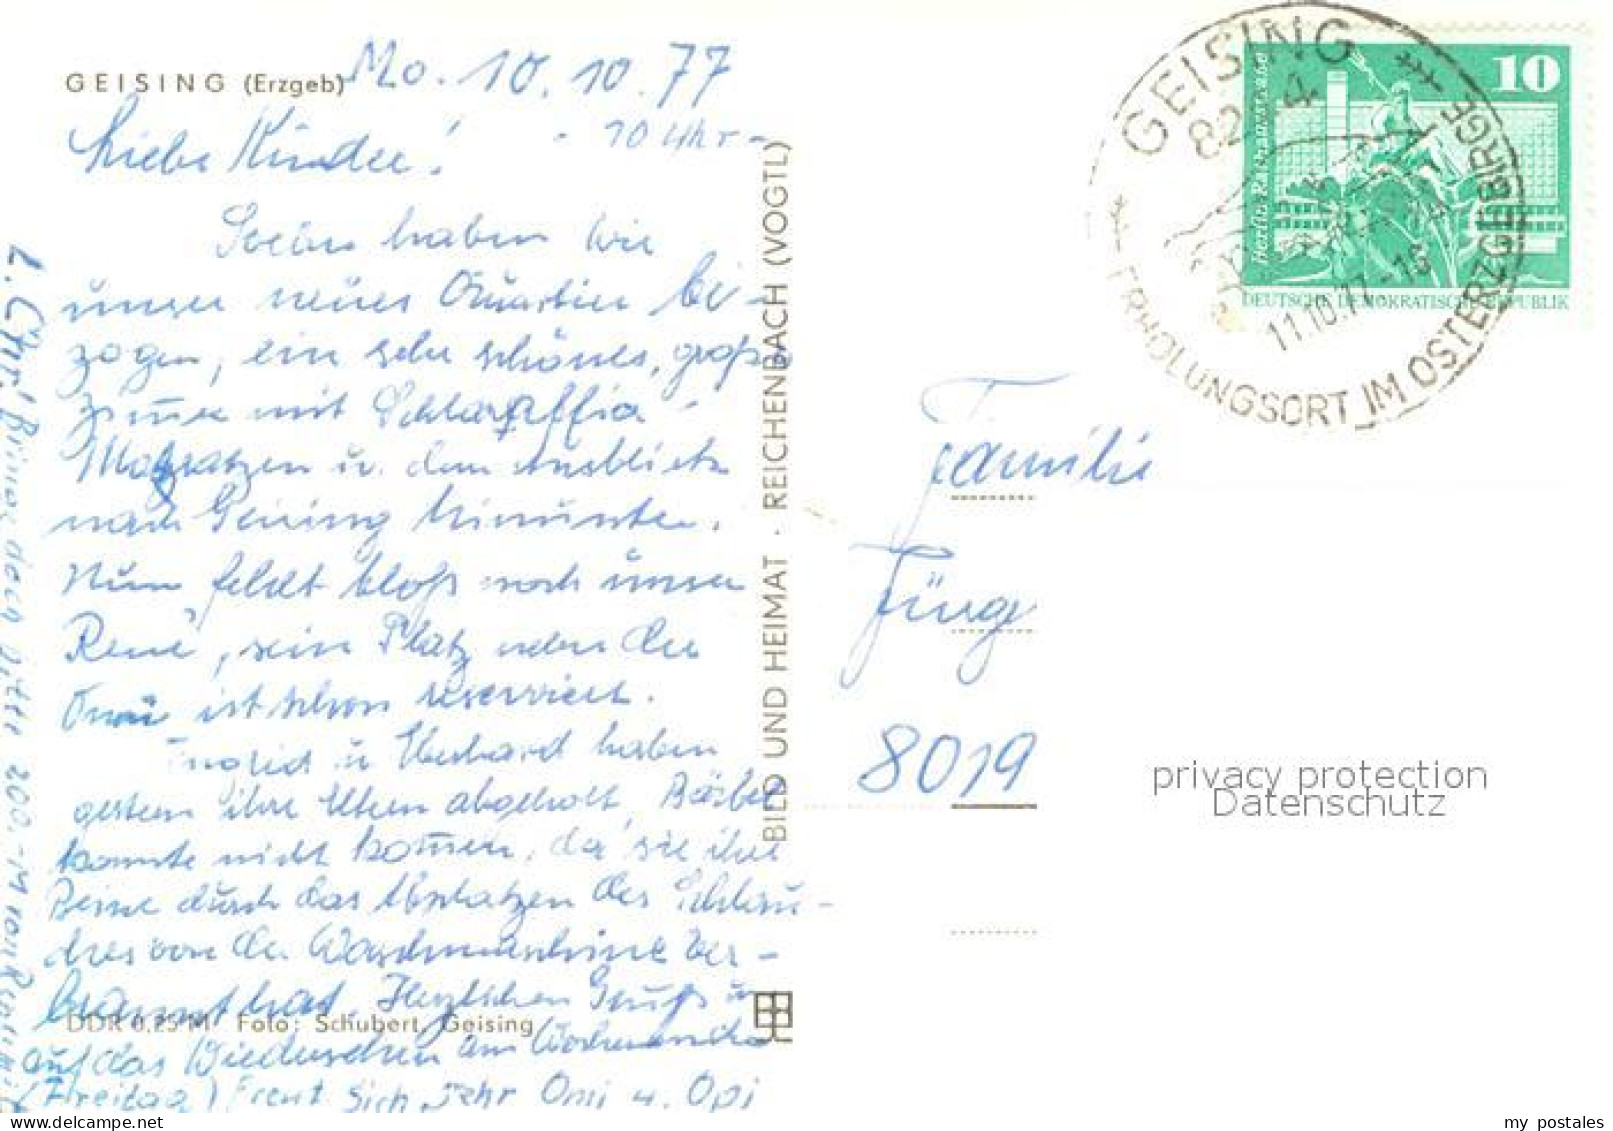 GEISING (Erzgeb)
Mo. 10.10.77
- 10 Uhr -
Liebe Kinder!
Soeben haben wir
unser neues Quartier be-
zogen, ein sehr schönes, großes
Zimmer mit Schlaraffia-
Matratzen u. dem Ausblick
nach Geising hinunter.
Nun fehlt bloß noch unser
René, sein Platz neben der
Omi ist schon reserviert.
Ingrid u. Eberhard haben
gestern ihre Eltern abgeholt, Bärbel
konnte nicht kommen, da sie ihre
Beine durch das Abplatzen des Schlau-
ches von der Waschmaschine ver-
brannt hat. Herzlichen Gruß u.
auf das Wiedersehen am Wochenende
(Freitag) Freut sich sehr Omi u. Opi
L. Chr.! Bring doch bitte 200,-M von
DDR 0,25 M Foto: Schubert, Geising
BILD UND HEIMAT · REICHENBACH (VOGTL)
GEISING
82 4
11.10.77-16
ERHOLUNGSORT IM OSTERZGEBIRGE
10
Berlin-Rathausstraße
DEUTSCHE DEMOKRATISCHE REPUBLIK
Familie
Jüng
8019
privacy protection
Datenschutz
my postales
www.delcampe.net